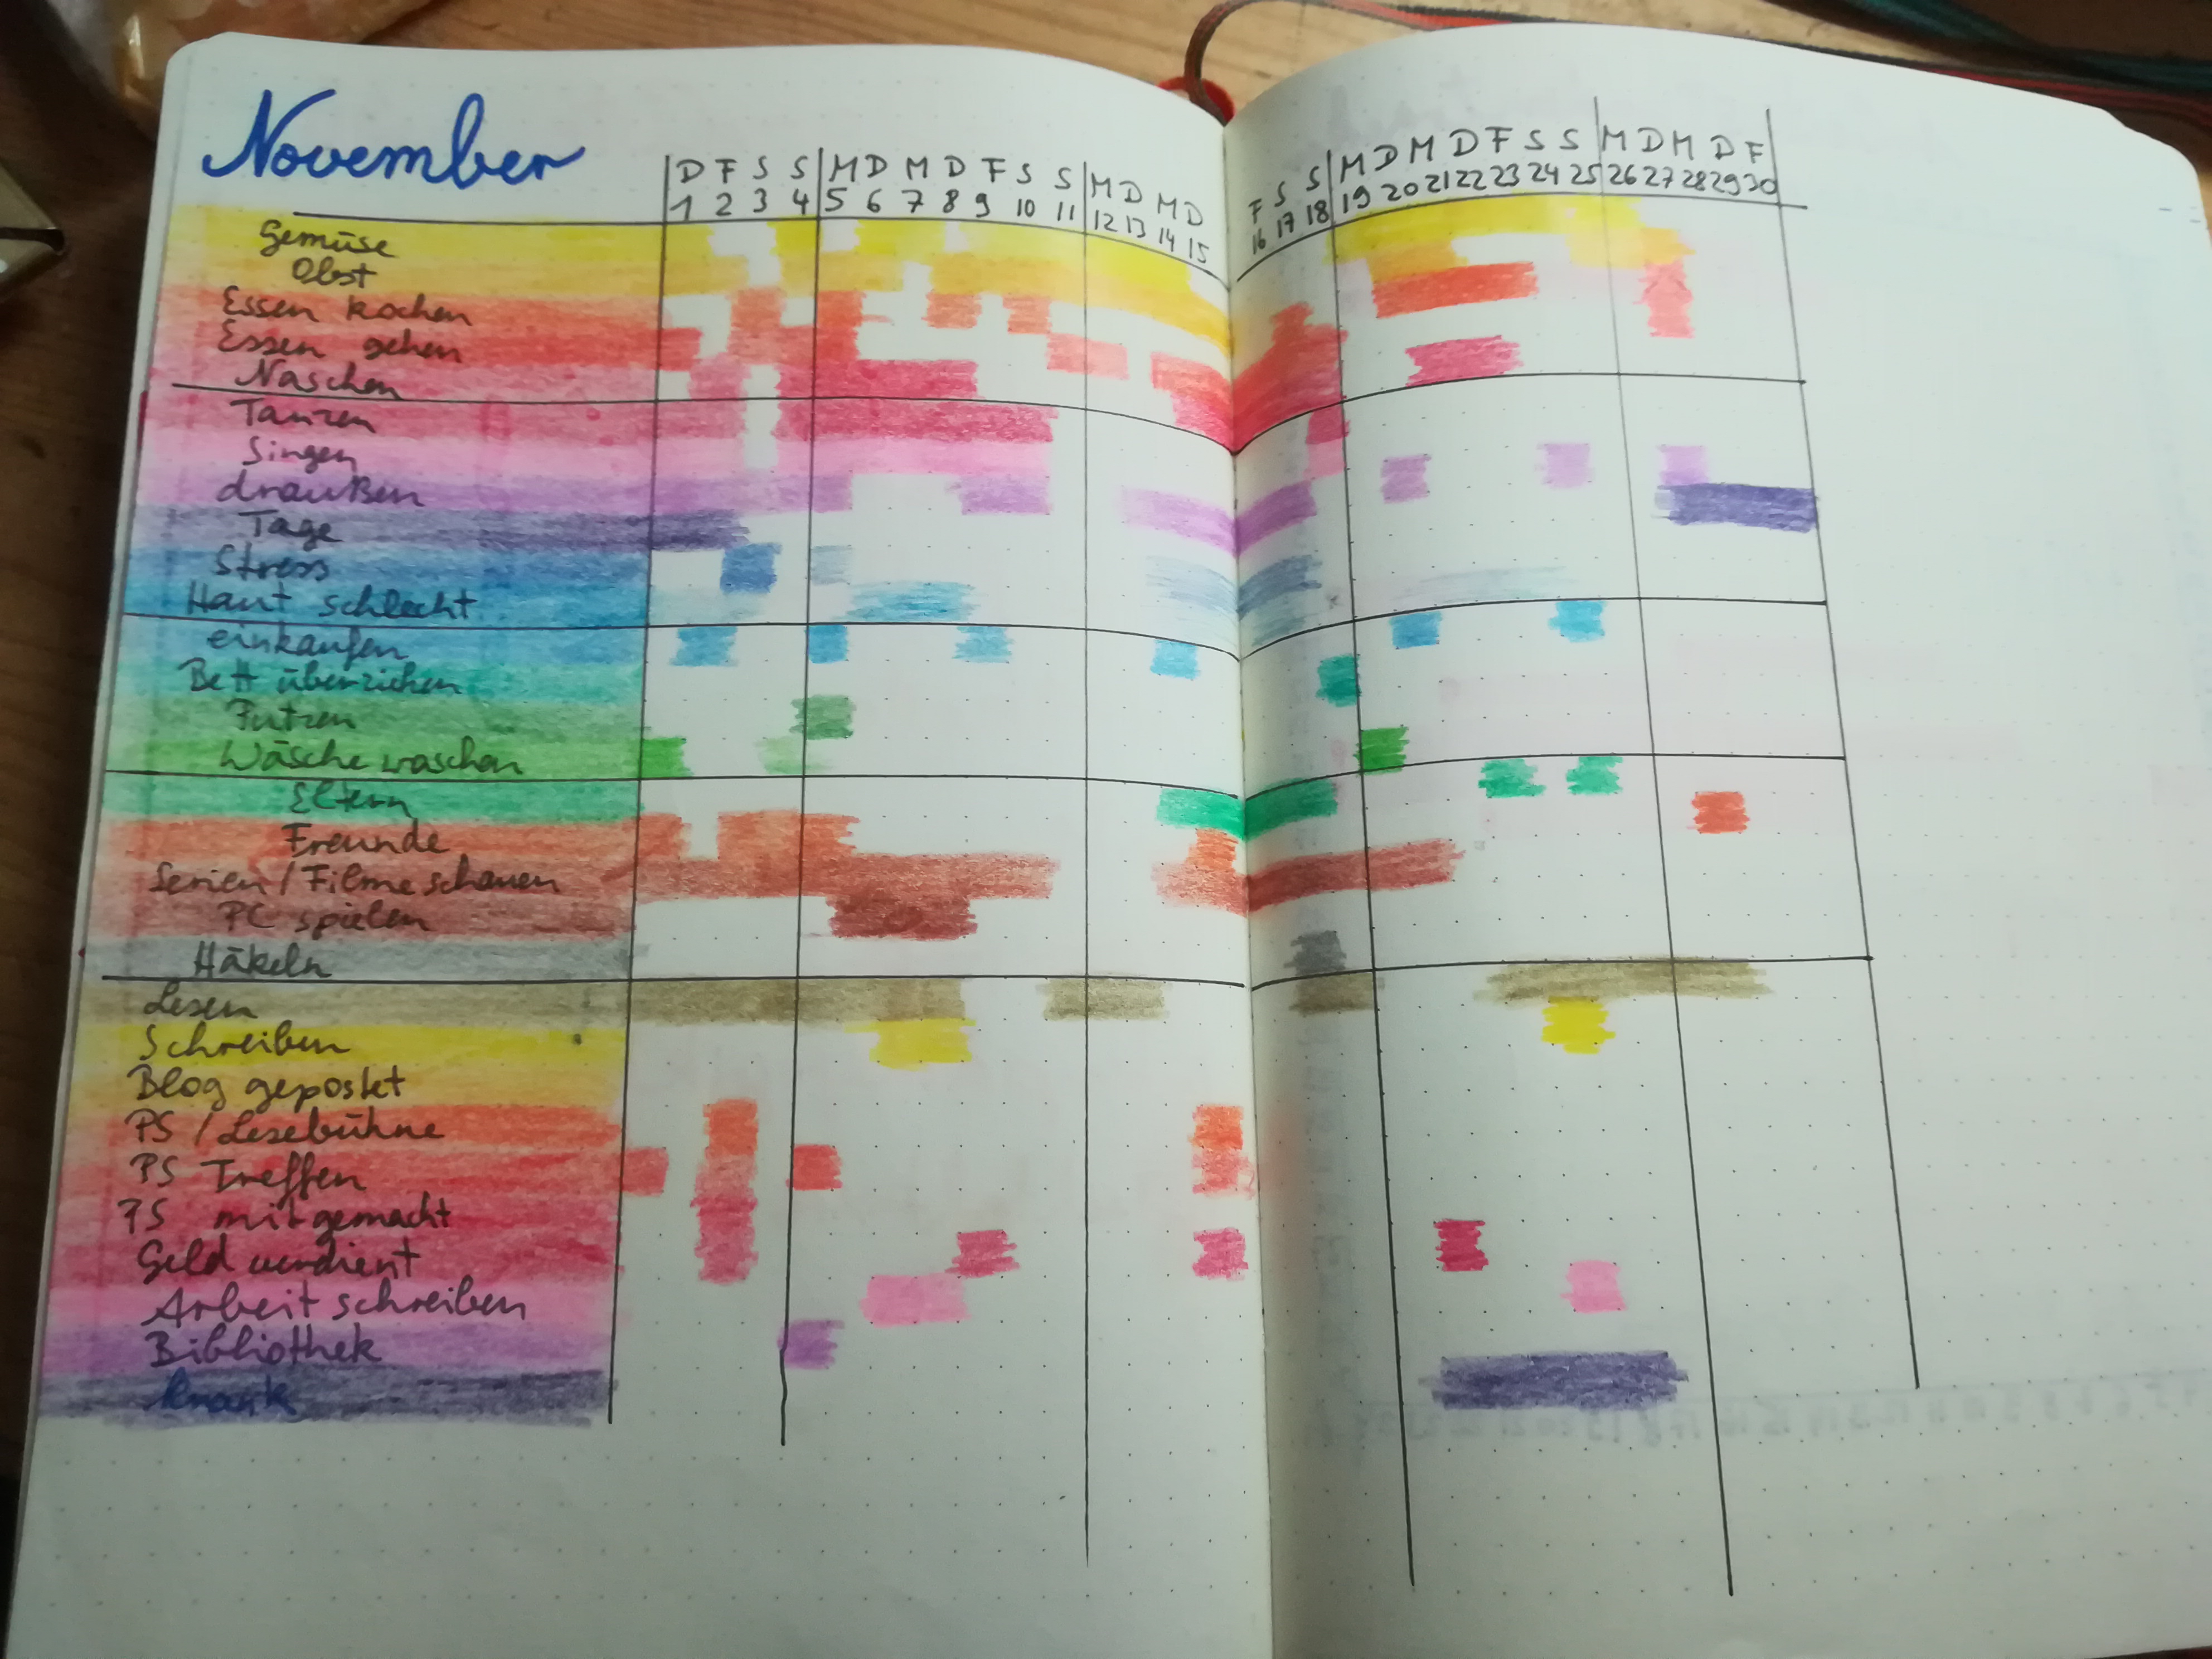 November
D F S S M D M D F S S M D M D F S S M D M D F S S M D M D F
1 2 3 4 5 6 7 8 9 10 11 12 13 14 15 16 17 18 19 20 21 22 23 24 25 26 27 28 29 30
Gemüse
Obst
Essen kochen
Essen gehen
Naschen
Tanzen
Singen
draußen
Tage
Stress
Haut schlecht
einkaufen
Bett überziehen
Putzen
Wäsche waschen
Eltern
Freunde
Serien / Filme schauen
PC spielen
Häkeln
Lesen
Schreiben
Blog gepostet
PS / Lesebühne
PS Treffen
PS mitgemacht
Geld verdient
Arbeit schreiben
Bibliothek
krank